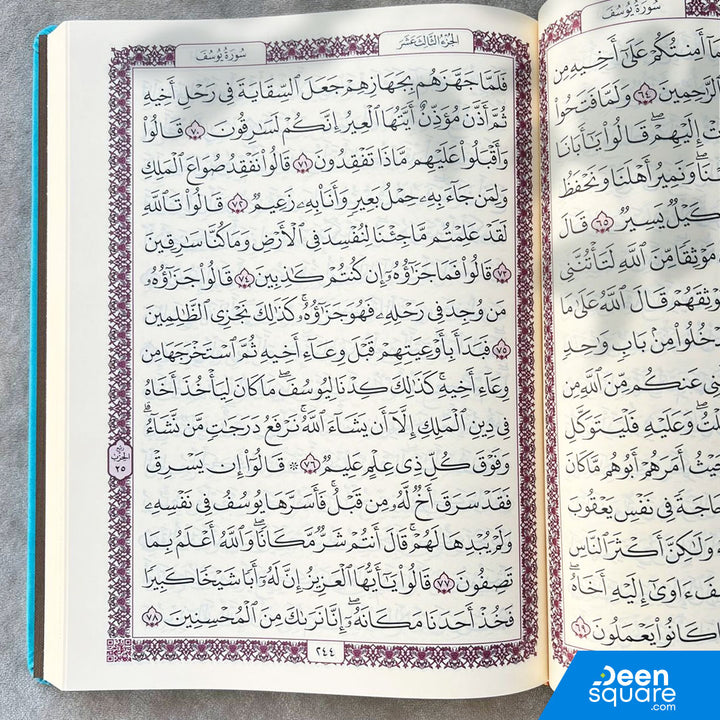 سُورَةُ يُوسُفَ
مَا أَمِنتُكُمْ عَلَىٰٓ أَخِيهِ مِن
ٱلرَّٰحِمِينَ ٦٤ وَلَمَّا فَتَحُوا۟
إِلَيْهِمْ ۖ قَالُوا۟ يَٰٓأَبَانَا
وَنَمِيرُ أَهْلَنَا وَنَحْفَظُ
كَيْلٌ يَسِيرٌ ٦٥ قَالَ
مَوْثِقًا مِّنَ ٱللَّهِ لَتَأْتُنَّنِى
مَوْثِقَهُمْ قَالَ ٱللَّهُ عَلَىٰ مَا
تَدْخُلُوا۟ مِنۢ بَابٍ وَٰحِدٍ
عَنكُم مِّنَ ٱللَّهِ مِن
وَعَلَيْهِ فَلْيَتَوَكَّلِ
حَيْثُ أَمَرَهُمْ أَبُوهُم مَّا كَانَ
حَاجَةً فِى نَفْسِ يَعْقُوبَ
وَلَٰكِنَّ أَكْثَرَ ٱلنَّاسِ
ءَاوَىٰٓ إِلَيْهِ أَخَاهُ ۖ
كَانُوا۟ يَعْمَلُونَ ٦٩
الجُزْءُ الثَّالِثَ عَشَرَ
سُورَةُ يُوسُفَ
فَلَمَّا جَهَّزَهُم بِجَهَازِهِمْ جَعَلَ ٱلسِّقَايَةَ فِى رَحْلِ أَخِيهِ
ثُمَّ أَذَّنَ مُؤَذِّنٌ أَيَّتُهَا ٱلْعِيرُ إِنَّكُمْ لَسَٰرِقُونَ ٧٠ قَالُوا۟
وَأَقْبَلُوا۟ عَلَيْهِم مَّاذَا تَفْقِدُونَ ٧١ قَالُوا۟ نَفْقِدُ صُوَاعَ ٱلْمَلِكِ
وَلِمَن جَآءَ بِهِۦ حِمْلُ بَعِيرٍ وَأَنَا۠ بِهِۦ زَعِيمٌ ٧٢ قَالُوا۟ تَٱللَّهِ
لَقَدْ عَلِمْتُم مَّا جِئْنَا لِنُفْسِدَ فِى ٱلْأَرْضِ وَمَا كُنَّا سَٰرِقِينَ
٧٣ قَالُوا۟ فَمَا جَزَٰٓؤُهُۥٓ إِن كُنتُمْ كَٰذِبِينَ ٧٤ قَالُوا۟ جَزَٰٓؤُهُۥ
مَن وُجِدَ فِى رَحْلِهِۦ فَهُوَ جَزَٰٓؤُهُۥ ۚ كَذَٰلِكَ نَجْزِى ٱلظَّٰلِمِينَ
٧٥ فَبَدَأَ بِأَوْعِيَتِهِمْ قَبْلَ وِعَآءِ أَخِيهِ ثُمَّ ٱسْتَخْرَجَهَا مِن
وِعَآءِ أَخِيهِ ۚ كَذَٰلِكَ كِدْنَا لِيُوسُفَ ۖ مَا كَانَ لِيَأْخُذَ أَخَاهُ
فِى دِينِ ٱلْمَلِكِ إِلَّآ أَن يَشَآءَ ٱللَّهُ ۚ نَرْفَعُ دَرَجَٰتٍ مَّن نَّشَآءُ ۗ
وَفَوْقَ كُلِّ ذِى عِلْمٍ عَلِيمٌ ٧٦ ۞ قَالُوٓا۟ إِن يَسْرِقْ
فَقَدْ سَرَقَ أَخٌ لَّهُۥ مِن قَبْلُ ۚ فَأَسَرَّهَا يُوسُفُ فِى نَفْسِهِۦ
وَلَمْ يُبْدِهَا لَهُمْ ۚ قَالَ أَنتُمْ شَرٌّ مَّكَانًا ۖ وَٱللَّهُ أَعْلَمُ بِمَا
تَصِفُونَ ٧٧ قَالُوا۟ يَٰٓأَيُّهَا ٱلْعَزِيزُ إِنَّ لَهُۥٓ أَبًا شَيْخًا كَبِيرًا
فَخُذْ أَحَدَنَا مَكَانَهُۥٓ ۖ إِنَّا نَرَىٰكَ مِنَ ٱلْمُحْسِنِينَ ٧٨
رُبْع
الحِزْب
٢٥
٢٤٤
Deen
square
.com